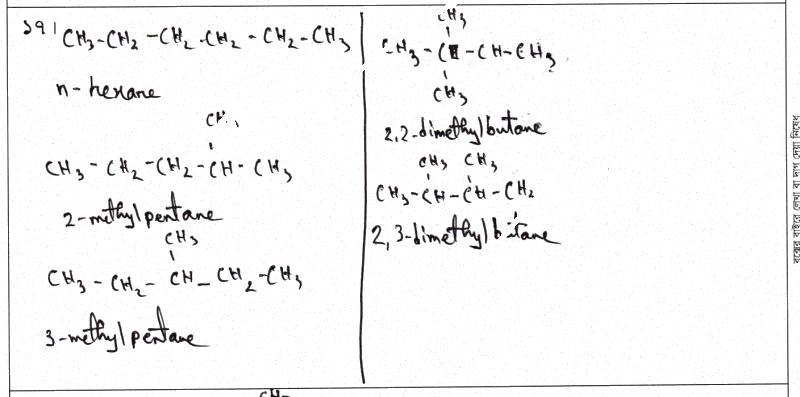 ১৭। CH3-CH2-CH2-CH2-CH2-CH3
n-hexane
CH3
CH3-CH2-CH2-CH-CH3
2-methylpentane
CH3
CH3-CH2-CH-CH2-CH3
3-methylpentane
CH3
CH3-C-CH-CH3
CH3
2,2-dimethylbutane
CH3 CH3
CH3-CH-CH-CH2
2,3-dimethylbutane
বক্সের বাইরে লেখা বা দাগ দেয়া নিষেধ